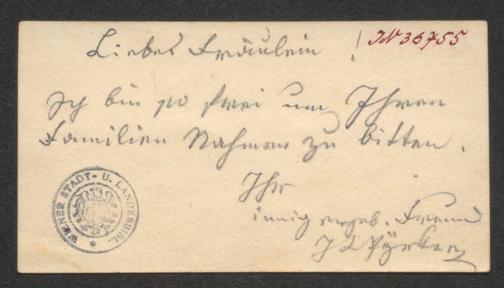 Liebes Fräulein !
JN 36755
Ich bin so frei um Ihren
Familien Nahmen zu bitten.
Ihr
innig ergeb. Freund
WIENER STADT- U. LANDESBIBL.